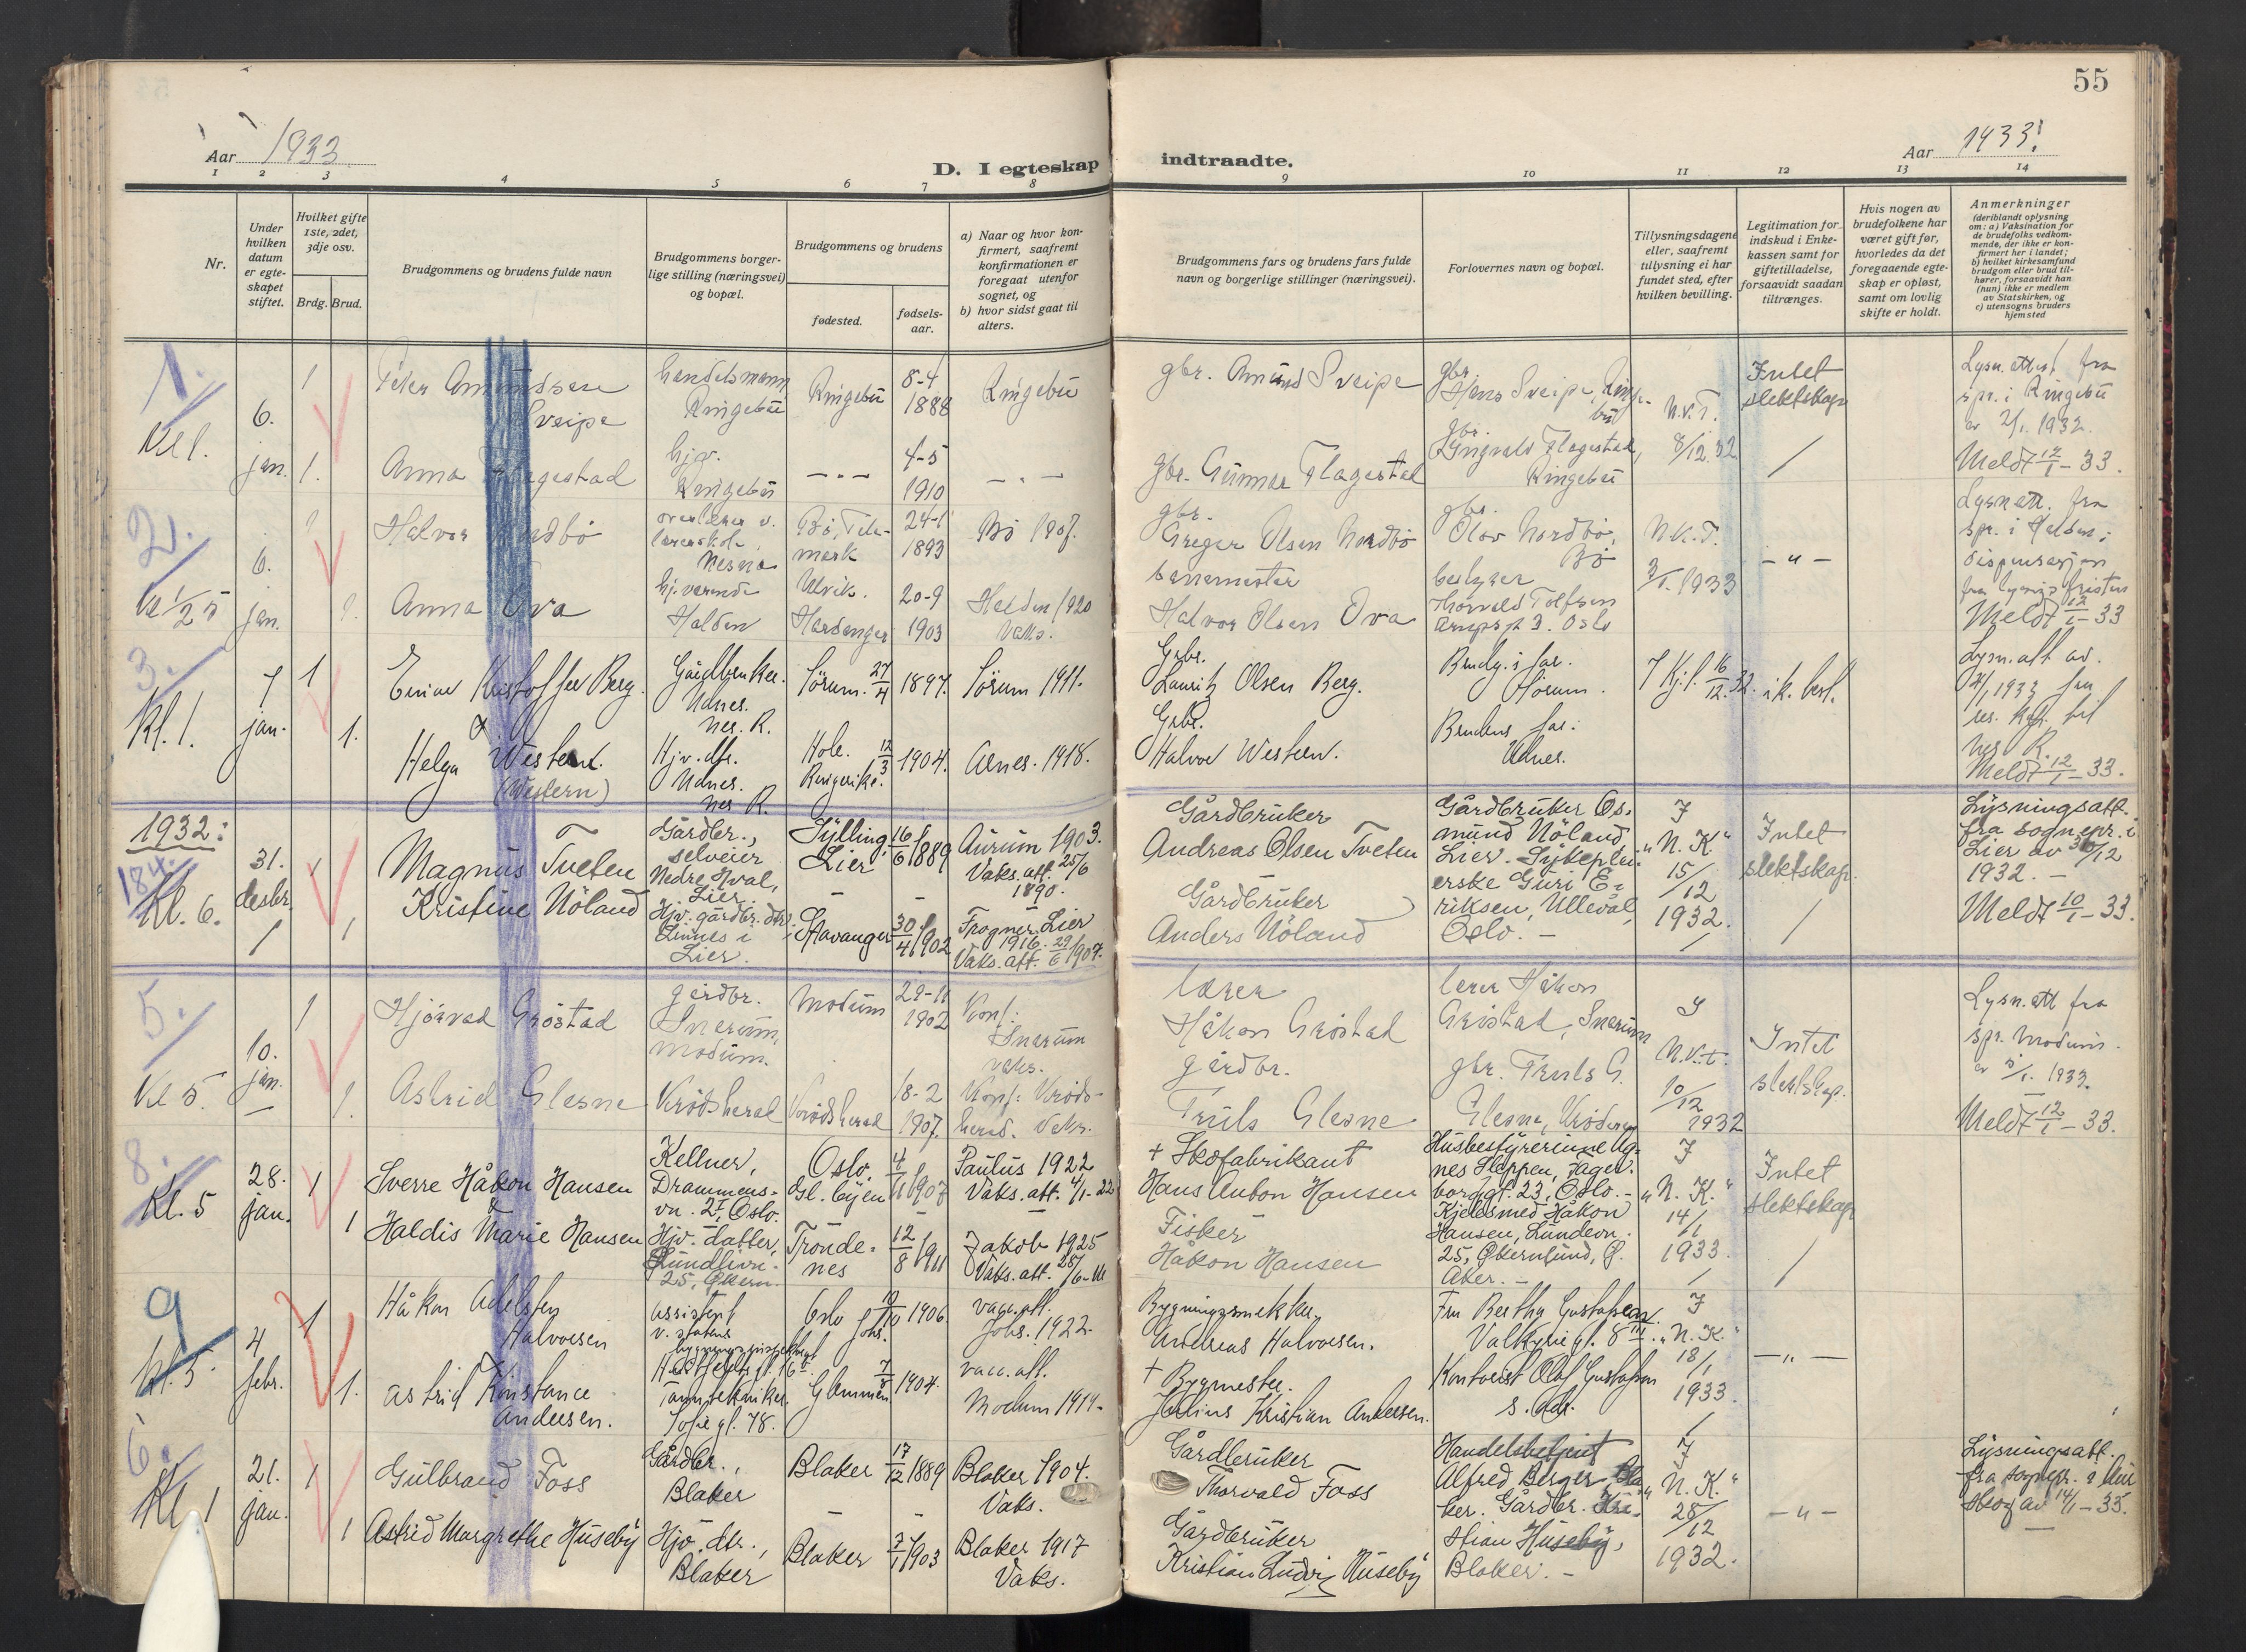 55
Aar 1933.
D. I egteskap
indtraadte.
Aar 1933.
1 2 3 4 5 6 7 8 9 10 11 12 13 14
Nr.
Under
hvilken
datum
er egte-
skapet
stiftet.
Hvilket gifte
1ste, 2det,
3dje osv.
Brdg. Brud.
Brudgommens og brudens fulde navn
Brudgommens borger-
lige stilling (næringsvei)
og bopæl.
Brudgommens og brudens
fødested.
fødsels-
aar.
a) Naar og hvor kon-
firmert, saafremt
konfirmationen er
foregaat utenfor
sognet, og
b) hvor sidst gaat til
alters.
Brudgommens fars og brudens fars fulde
navn og borgerlige stillinger (næringsvei).
Forlovernes navn og bopæl.
Tillysningsdagene
eller, saafremt
tillysning ei har
fundet sted, efter
hvilken bevilling.
Legitimation for
indskud i Enke-
kassen samt for
giftetilladelse,
forsaavidt saadan
tiltrænges.
Hvis nogen av
brudefolkene har
været gift før,
hvorledes da det
foregaaende egte-
skap er opløst,
samt om lovlig
skifte er holdt.
Anmerkninger
(deriblandt oplysning
om: a) Vaksination for
de brudefolks vedkom-
mende, der ikke er kon-
firmert her i landet;
b) hvilket kirkesamfund
brudgom eller brud til-
hører, forsaavidt han
(hun) ikke er medlem
av Statskirken, og
c) utensogns bruders
hjemsted
1.
Kl 1.
6.
jan.
1
1.
Peter Amundsen
Sveipe
Anna Flagestad
handelsmann
Ringebu
hjv.
Ringebu
Ringebu
— " —
8-4
1888
4-5
1910
Ringebu
— " —
gbr. Amund Sveipe
gbr. Gunnar Flagestad
gbr.
Hans Sveipe, Ringe-
bu
gbr.
Ringebu
N.K.T.
8/12.32
Intet
slektskap
/
Lysn. attest fra
spr. i Ringebu
av 2/1. 1932.
Meldt 12/1 - 33.
2.
6.
jan.
Halvor Nordbø
Anna Ova
overlærer v.
lærerskole,
Nesna
hj.værende
Halden
Bø, Tele-
mark
Ulvik.
Hardanger
24-1
1893
20-9
1903
Bø 1907.
Halden 1920
Vaks.
gbr.
Greger Olsen Nordbø
banemester
Halvor Olsen Ova
gbr.
Olav Nordbø,
Bø
bestyrer
Thorvald Tolfsen
3. Oslo
N.K.T.
3/1. 1933
— " —
Lysn att. fra
spr. i Halden;
dispensasjon
fra lysnings fristen
Meldt 12/1 - 33
3.
Kl. 1.
7
jan.
1
1.
Einar Kristoffer Berg.
Helga Western.
(Western)
Gårdbruker.
Udnes.
nes. R.
Hjv. dtr.
Udnes.
nes R.
Sørum.
Hole.
Ringerike.
27/4 1897.
12/3 1904.
Sørum 1911.
Arnes. 1918.
Grbr.
Lauritz Olsen Berg.
Grbr.
Halvor Western.
Brudg.s far.
Sørum.
Brudens far:
Udnes.
16/12.32.
ik. besl.
Lysn. att av.
1933 fra
res. kap. til
nes R.
Meldt 12/1 - 33.
1932:
184.
Kl. 6.
31.
desbr.
/
1
1
Magnus Tveten
Kristine Nöland
Gårdbr.,
selveier
Nedre Hval,
Lier.
Hjv. gårdbr. dtr.
Linnes i
Lier.
Sylling,
Lier
—
Stavanger
16/6 1889
30/4 1902
Aurum 1903.
Vaks. att. 25/6
1890.
Frogner, Lier
1916.
Vaks. att. 29/6 1907.
Gårdbruker
Andreas Olsen Tveten
Gårdbruker
Anders Nöland
Gårdbruker Os-
mund Nöland,
Lier. Sykeplei-
erske Guri E-
riksen, Ullevål,
Oslo. —
I
„N. K."
15/
12
1932.
/
Intet
slektskap.
/
Lysningsatt.
fra sognepr. i
Lier av 30/12
1932. —
Meldt 10/1 - 33.
5.
Kl 5.
10.
jan.
—
1
1.
Hjørvad Grøstad
Astrid Glesne
gårdbr.
Snarum,
Modum.
Krødsherad
Modum
Krødsherad
29-11
1902
18-2
1907
Konf:
Snarum
vaks.
Konf: Krøds-
herad. Vaks.
lærer
Håkon Grøstad
gårdbr.
Truls Glesne
lærer Håkon
Grøstad, Snarum
gbr. Truls G.
Glesne, Krødsherad
I
N.K.t.
10/
12
1932
Intet
slektskap.
Lysn. att fra
spr. Modum.
av 5/1. 1933.
Meldt 12/1 - 33.
8.
Kl. 5
28.
jan.
1
1
Sverre Håkon Hansen
Haldis Marie Hansen
Kellner,
Drammens-
vn. 2 I, Oslo.
Hjv. datter,
Lundlivn.
25, Økern.
Oslo.
Gl. byen
Tronde-
nes
4/11 1907
12/8 1911
Paulus 1922
Vaks. att. 4/1-22
—
Jakob 1925
Vaks. att. 28/6-
+ Skofabrikant
Hans Anton Hansen
Fisker
Håkon Hansen
Husbestyrerinne Ag-
nes Sleppen, Jæger-
borggt. 23, Oslo. —
Kjelesmed Håkon
Hansen, Lundevn.
25, Økernlund, Ø.
Aker. —
I
„N. K."
14/
1
1933.
/
Intet
slektskap
/
9
kl. 5
4
febr.
1
1.
Håkon Adelsten
Halvorsen
Astrid Konstance
Andersen.
assistent
v. statens
Tanntekniker.
Sofie gt. 78.
Oslo Johs.
Glemmen
1906
1904.
vacc. att.
Johs. 1922.
vacc. att.
Modum 1919.
Bygningssnekker.
Andreas Halvorsen.
+ Bygmester.
Julius Kristian Andersen.
Fru Berthy Gustafsen.
Valkyriegt. 8 III.
Kontorist Olaf Gustafsen
s. adr.
I
„N. K."
18/1
1933.
/
— " —
6.
Kl. 1
21.
jan.
1
1
Gulbrand Foss
Astrid Margrethe Huseby
Gårdbr.,
Blaker
Hjv. dtr.,
Blaker
Blaker
—
Blaker
17/12 1889
7/1 1903
Blaker 1904.
Vaks.
—
Blaker 1917
Vaks.
Gårdbruker
Thorvald Foss
Gårdbruker
Kristian Ludvig Huseby
Handelsbetjent
Alfred Berger, Bla-
ker. Gårdbr. Kri-
stian Huseby,
Blaker. —
I
„N. K."
28/
12
1932.
— " —
Lysningsatt.
fra sognepr. i Aur
skog av 14/1 - 33.